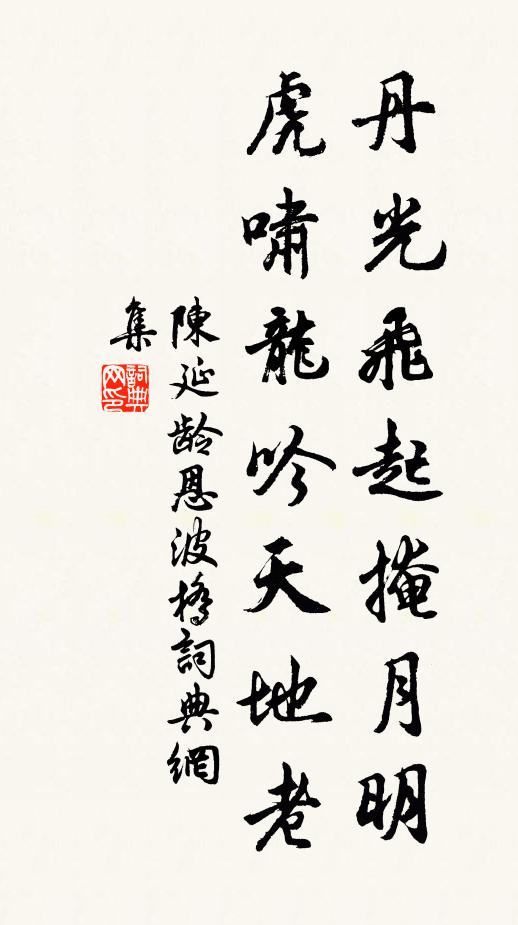 丹光飛起掩月明
虎嘯龍吟天地老
陳延齡恩波橋詞典網
集
詞典网印